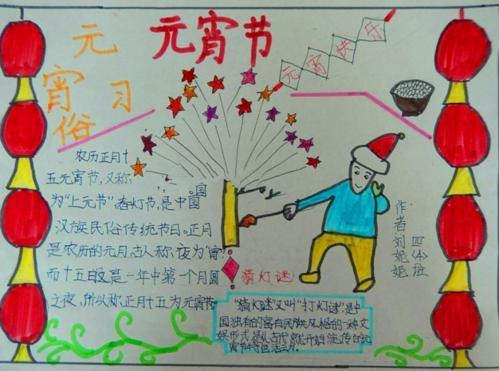 元宵节
元
宵 习
俗
元宵快乐
农历正月十
五元宵节,又称
为"上元节",春灯节,是中国
汉族民俗传统节日。正月
是农历的元月,古人称夜为"宵"
而十五日又是一年中第一个月圆
之夜,所以称正月十五为元宵节
猜灯谜
"猜灯谜"又叫"打灯谜"是中
国独有的富有民族风格的一种文
娱形式
作者